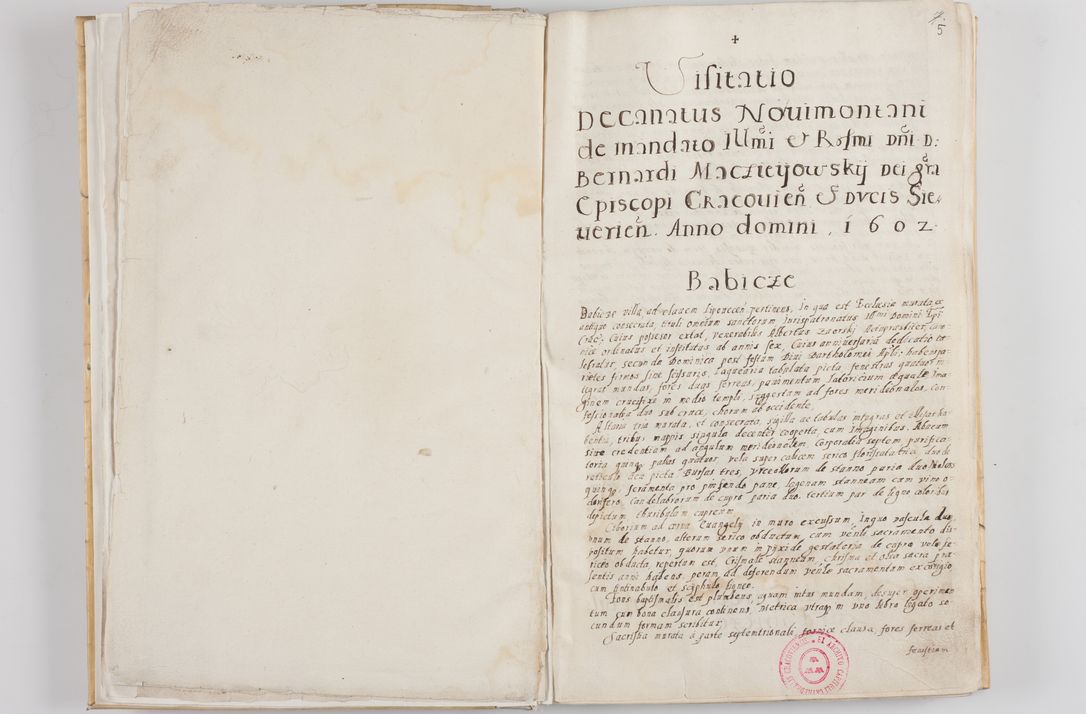 5
Visitatio
Decanatus Novimontani
de mandato Illmi et Rssmi Dni D:
Bernardi Maczieyowskij Dei gra
Episcopi Cracovien et Ducis Sie-
verien. Anno domini, 1602
Babicze
Babicze villa, ad clavem lipovecen pertinens, In qua est Ecclesia murata, ex
antiquo consecrata, tituli omnium sanctorum Jurispatronatus Illmi Domini Epi
Crac: Cuius possesor extat, venerabilis Albertus
nice ordinatus et institutus ab annis sex, Cuius anniversaria dedicatio ce-
lebratur, secunda Dominica post festum Divi Bartholomei Apli: habens pa-
rietes firmos sine scissuris, laquearia tabulata picta fenestras quatuor in-
tegras mundas, fores duas ferreas, pavimentum latericium æquale Ima-
ginem crucifixi in medio templi, suggestum ad fores meridionales, con-
fessionalia duo sub cruce, chorum ab occidente.
Altaria tria murata, et consecrata, sigilla ac tabulas integras et illesas ha-
bentia, tribus mappis singula decenter cooperta, cum Imaginibus. Abacum
sive credentiam ad angulum meridionalem, Corporalia septem purifica-
toria quinque pallas quatuor, vela super calicem serico floristata tria, duo de
reticulo acu picta Bursas tres, vrceollorum de stanno paria duo
quinque, feramenta pro pinsendo pane, lagenam stanneam cum vino o-
dorifero, Candelabrorum de cupro paria duo, tertium par de ligno coloribus
depictum thuribulum cupreum
Ciborium ad cornu Euangely in muro excussum, Inquo vascula duo,
vnum de stanno, alterum serico obductum, cum venle sacramento dis-
positum habetur, quorum vnum in pixide gestatoria de cupro velo se-
rico obducta, repertum est, Crismale stanneum, Chrisma et olea sacra præ-
sentis anni habens, peram ad deferendum venle sacramentum
cum tintinabulo et sciphulo ligneo.
Fons baptismalis est plumbeus, aquam intus mundam, desuper operimen
tum cum bona clausura continens, metrica vtraque in vno libro ligato se-
cundum formam scribitur,
Sacristia murata a parte septemtrionali fornice clausa, fores ferreas et